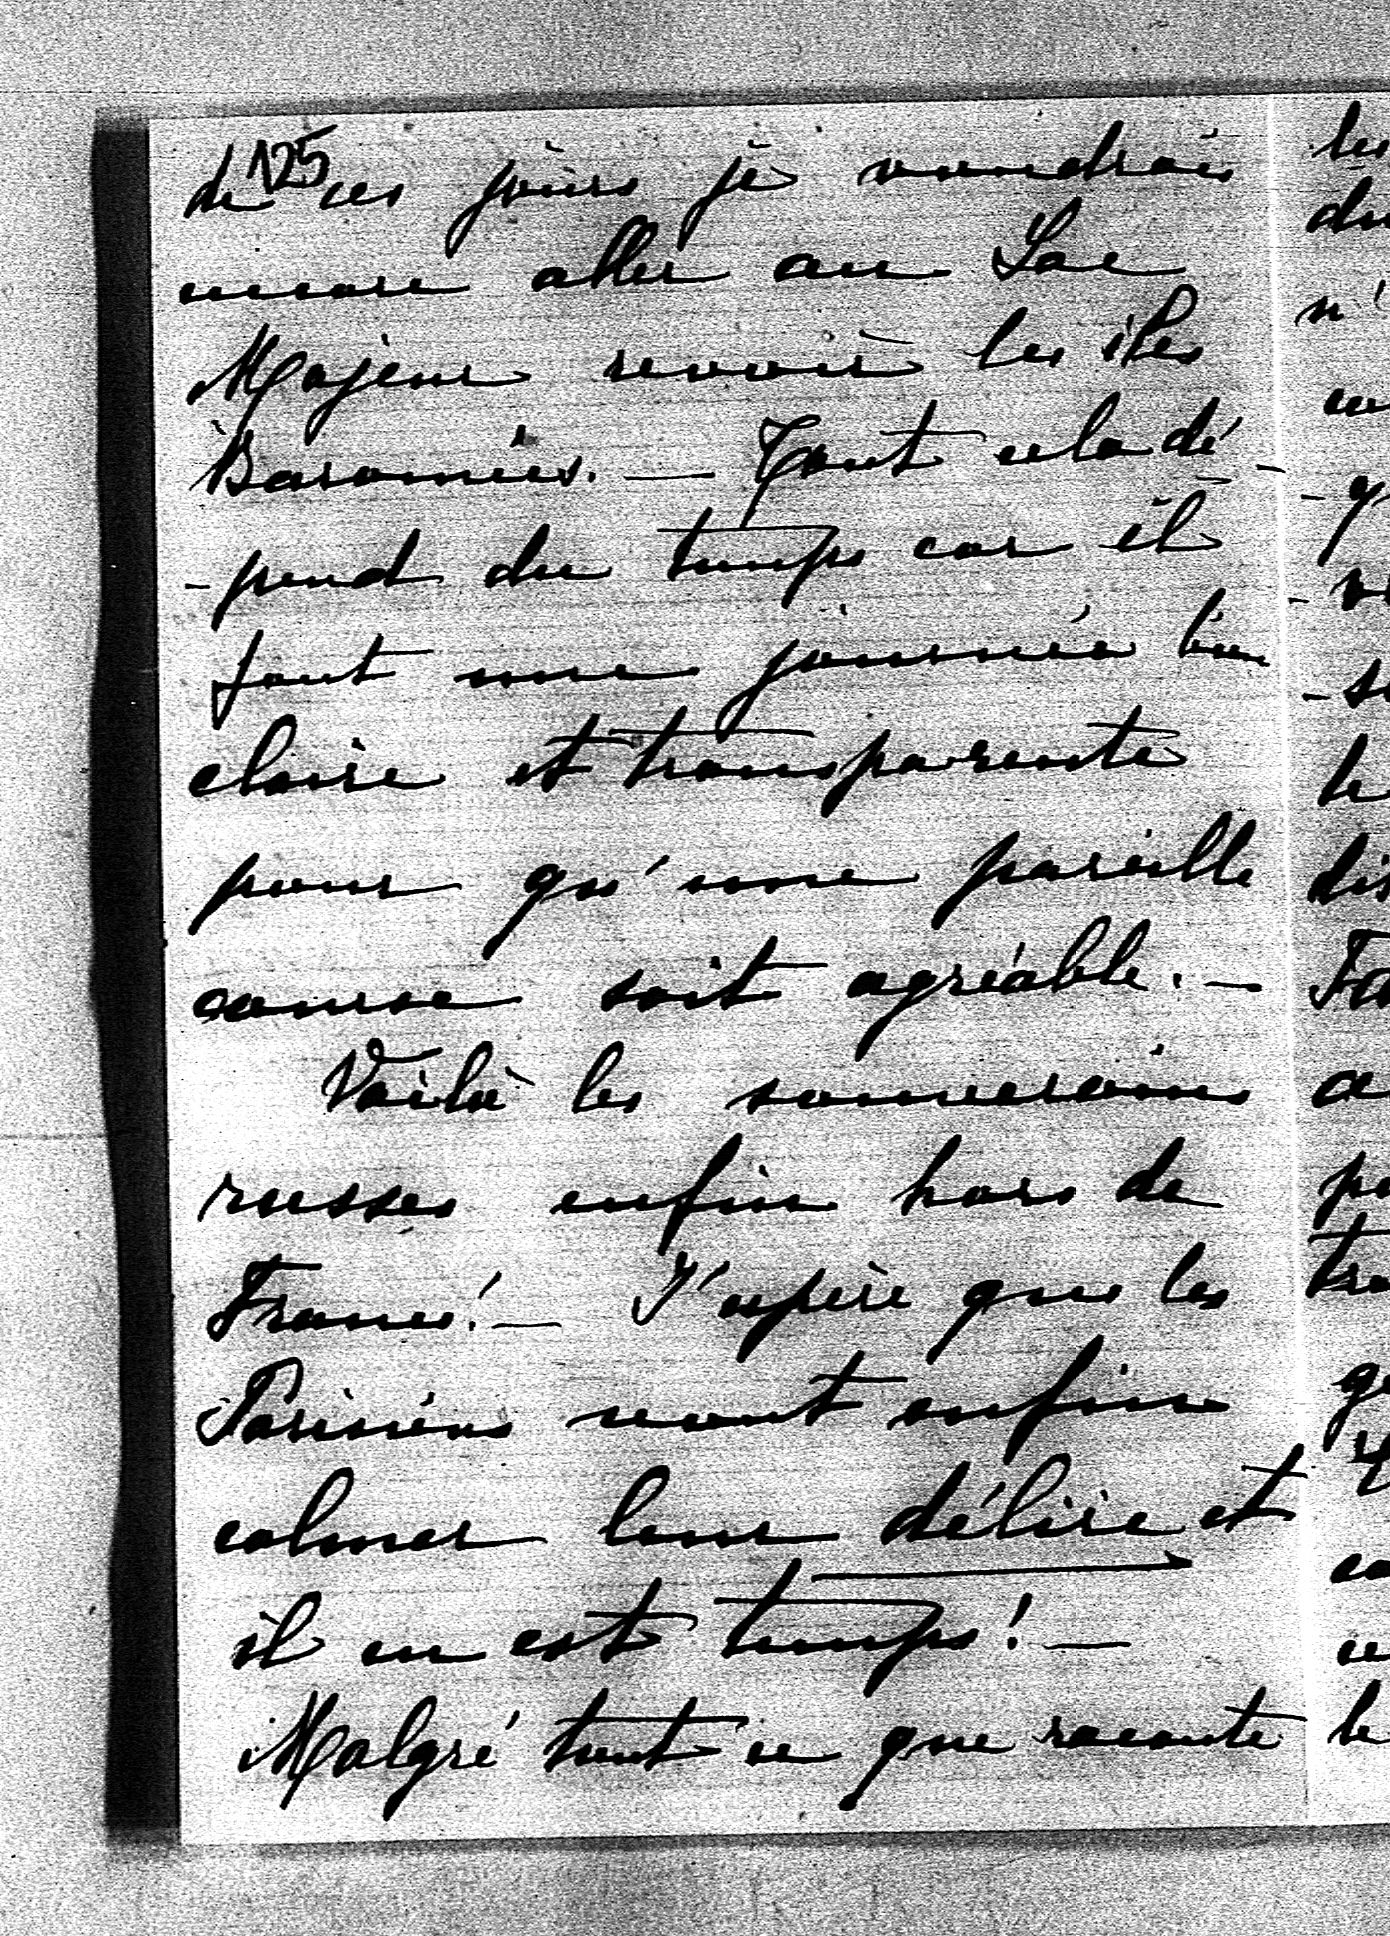 125
de ces jours je voudrais
encore aller au Lac
Majeur revoir les îles
Baromies. — Tout cela dé-
-pend du temps car il
faut une journée bien
claire et transparente
pour qu'une pareille
course soit agréable. —
Voilà les souverains
russes enfin hors de
France! — J'espère que les
Parisiens vont enfin
calmer leur délire et
il en est temps! —
Malgré tout ce que raconte